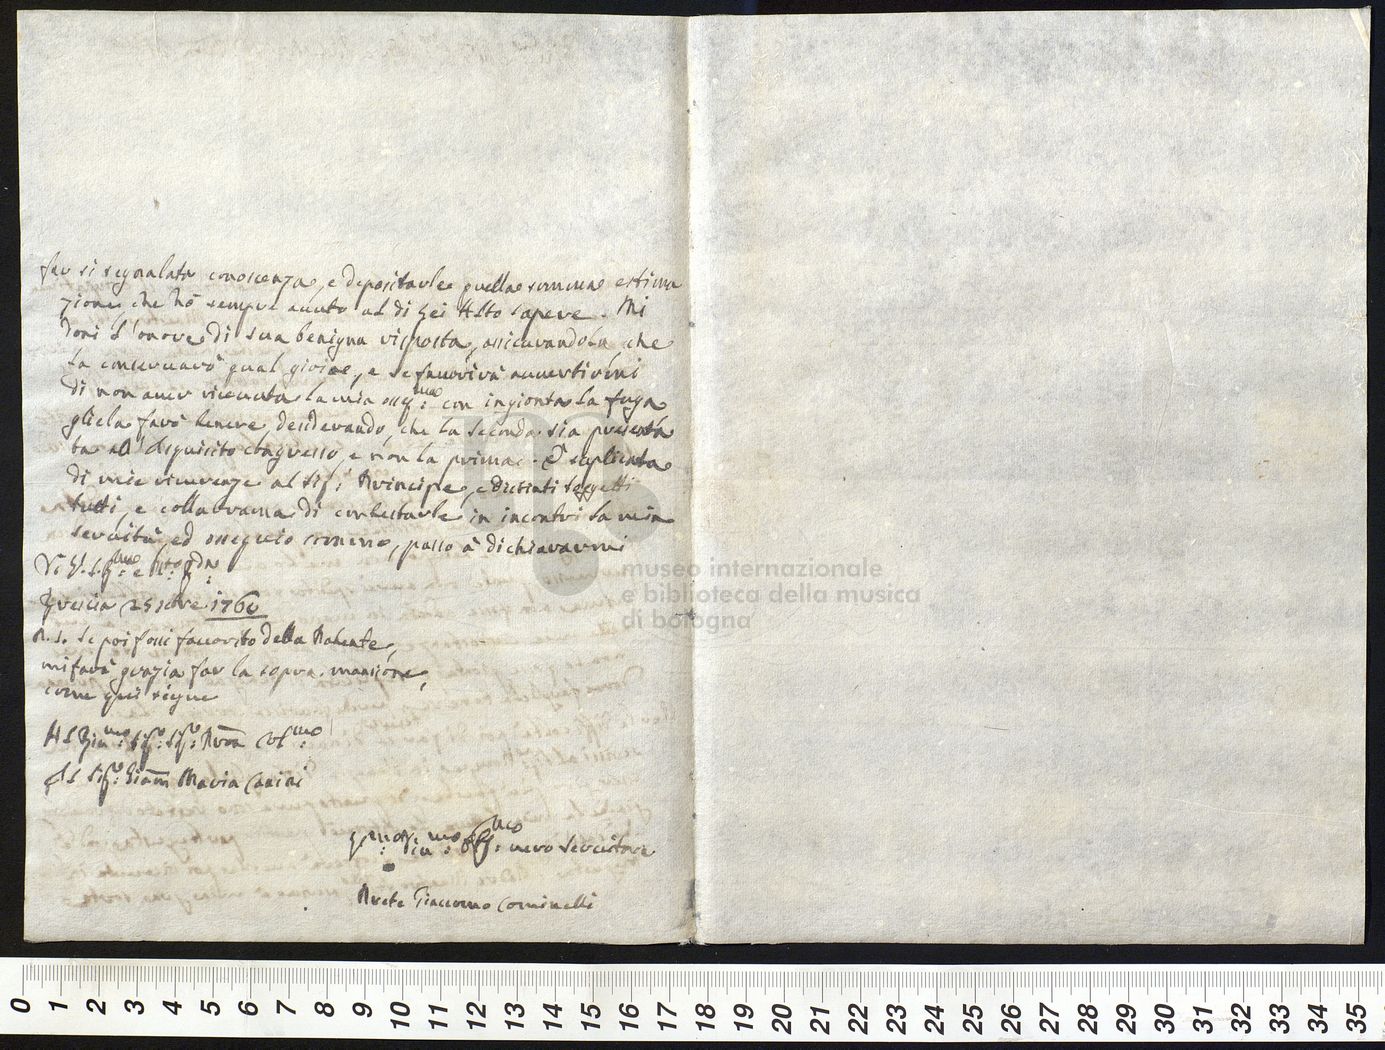 far si segnalata conoscenza, e depositarle quella somma estima
zione che hò sempre auuto al di Lei Alto sapere. Mi
doni l'onore di sua benigna risposta, assicurandola che
la conseruarò qual gioia, e se fauorirà auuertirmi
di non auer riceuuta la mia con ingionta la fuga
gliela farò tenere desiderando, che la seconda sia presenta
ta all'esquisito congresso, e non la prima. E suplicata
di mie riuerenze al Sig.r Principe, e Suggetti
tutti, e collaurama di contestarle in incontri la mia
seruitù ed ossequio comune, passo à dichiararmi
Di V. S. Ill.ma e
Brescia 25 1760
P.S. Se poi fossi fauorito della Patente,
mi farà grazia far la sopra mansione,
come qui siegue
Al Sig.r Sig.r Pron Col.mo
Al Sig.r Giam Maria Canini
Diu.mo Obb.mo uero Seruitore
Prete Giacomo Cominelli
museo internazionale
e biblioteca della musica
di bologna
0 1 2 3 4 5 6 7 8 9 10 11 12 13 14 15 16 17 18 19 20 21 22 23 24 25 26 27 28 29 30 31 32 33 34 35